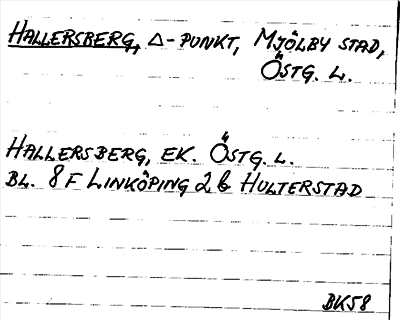 HALLERSBERG, Δ-PUNKT, MJÖLBY STAD,
ÖSTG. L.
HALLERSBERG, EK. ÖSTG. L.
BL. 8F LINKÖPING 2b HULTERSTAD
BK58